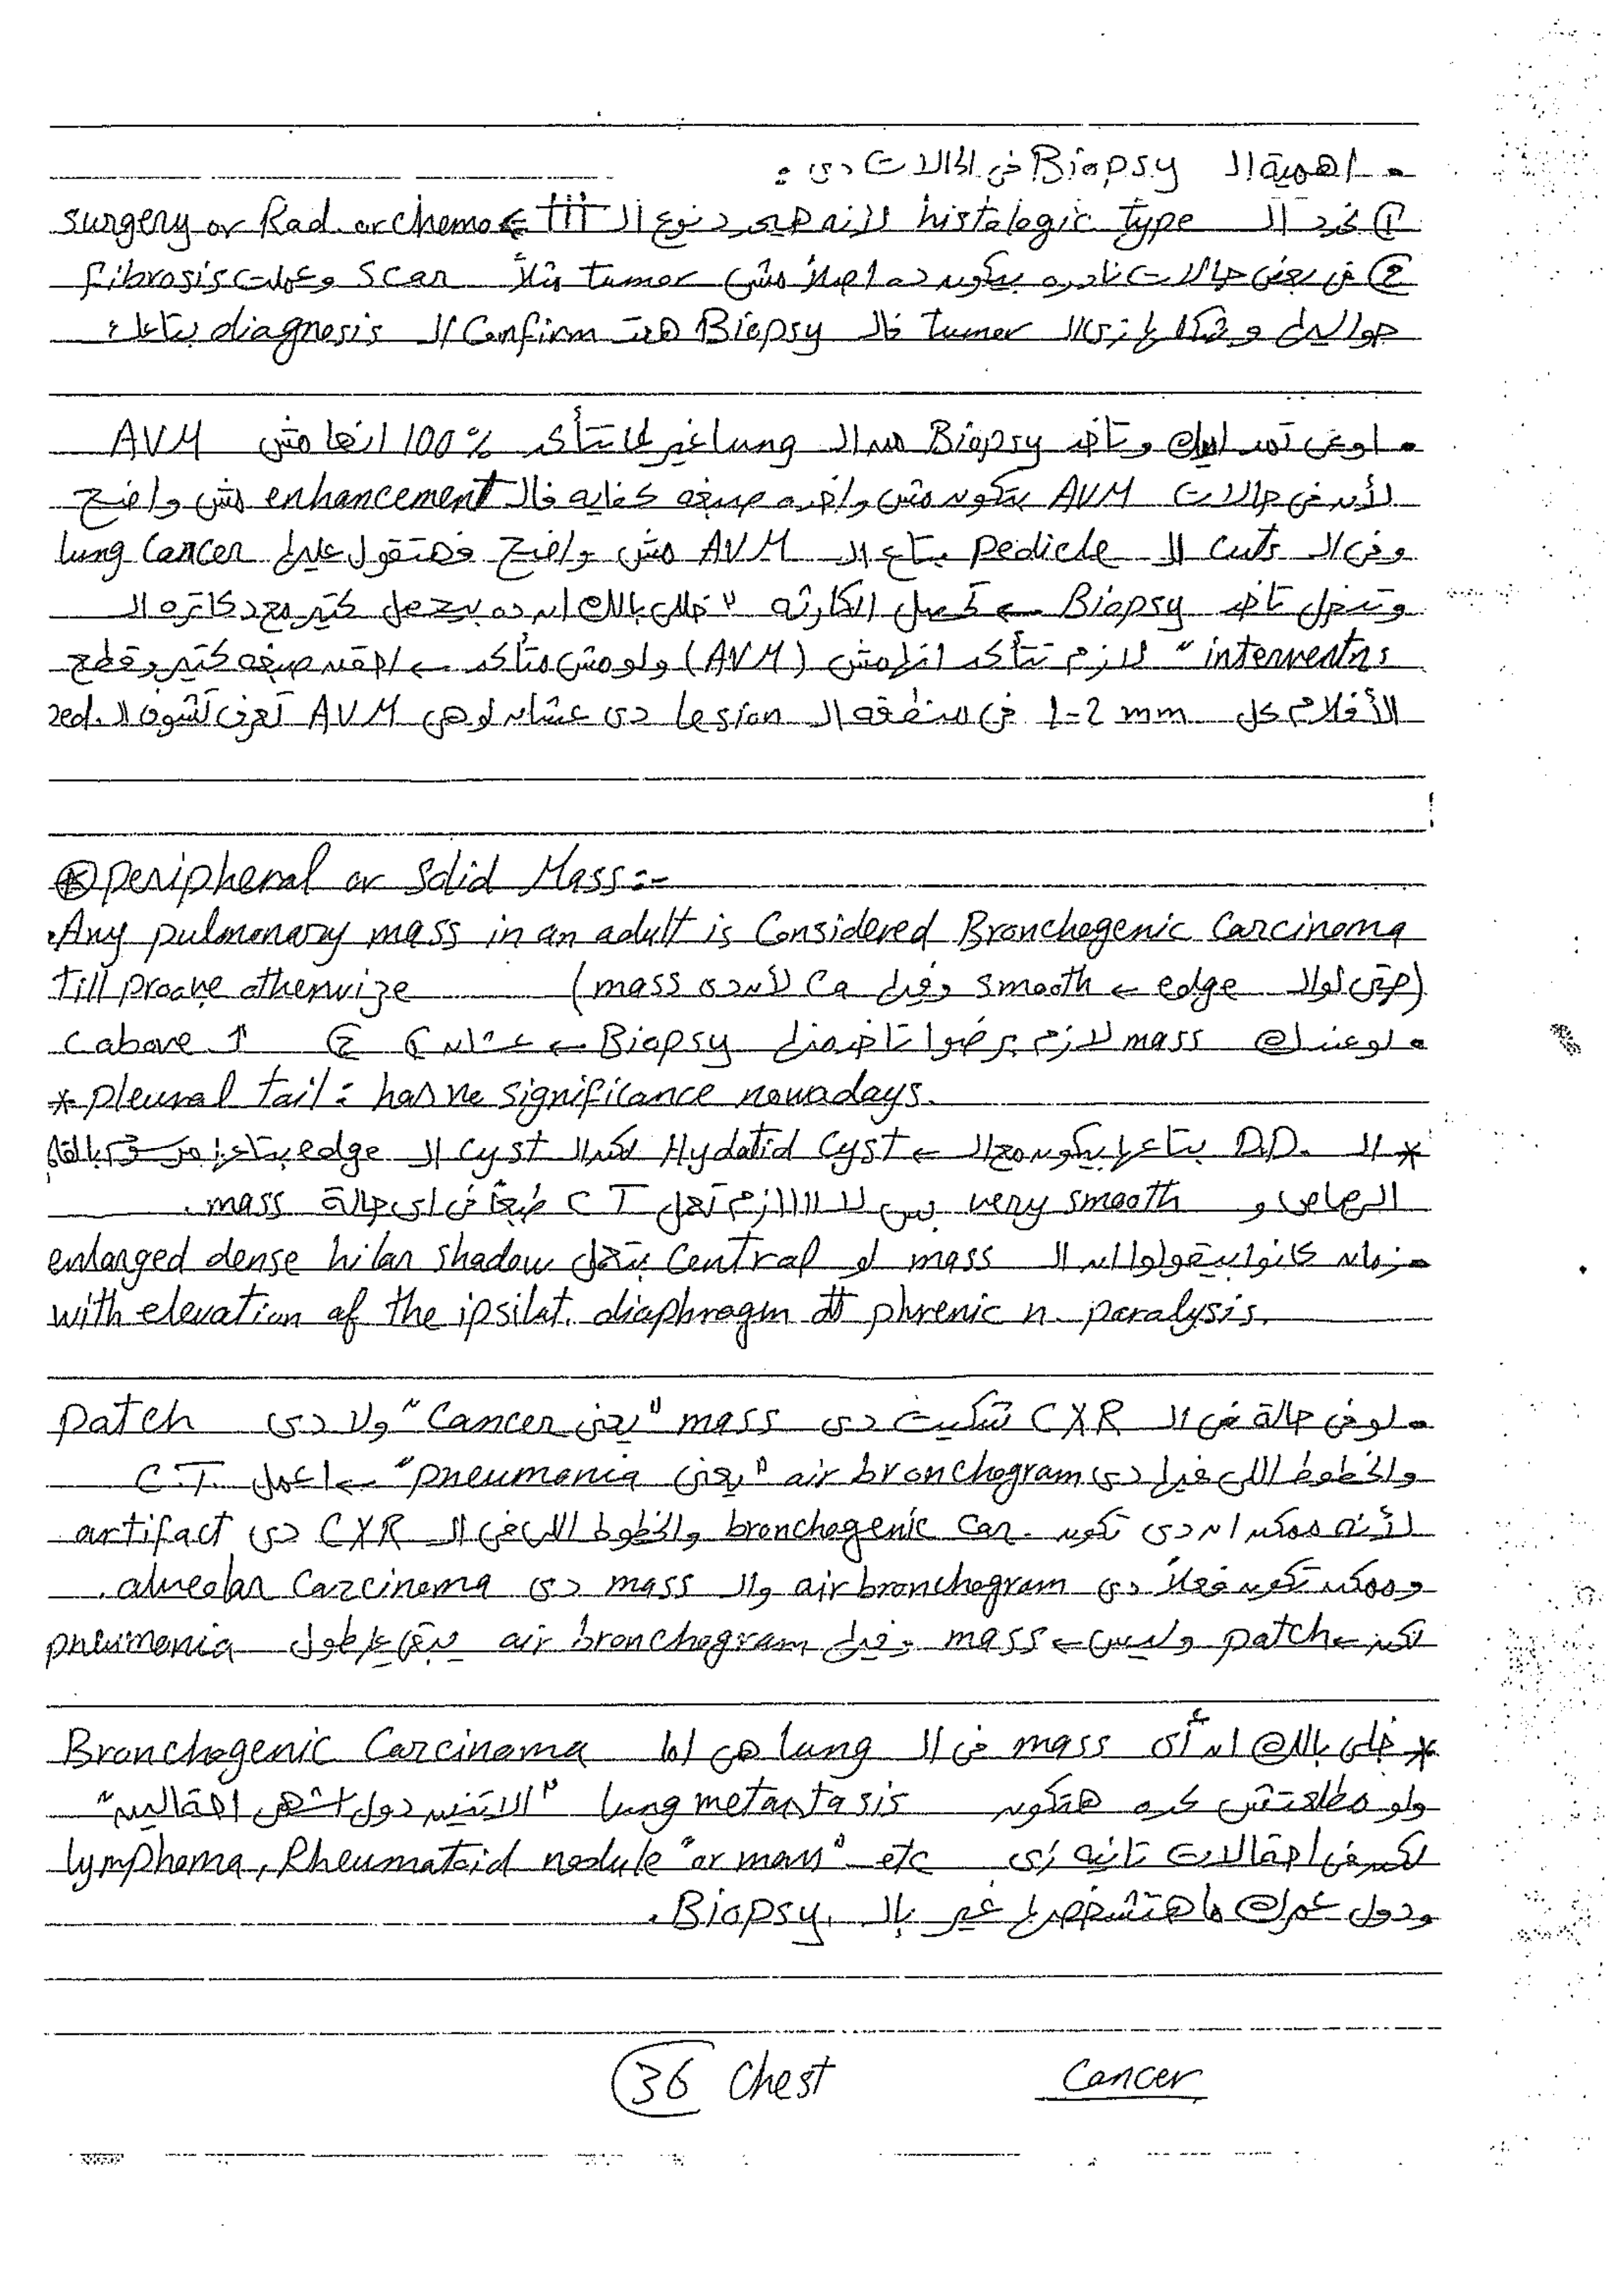 • اهمية الـ Biopsy فى الحالات دى :
① تحدد الـ histologic type لأنه هيحدد نوع الـ ttt ← surgery or Rad. or chemo
② فى بعض حالات نادره بيكون ده اصلاً مش tumor مثلاً Scar وعملت fibrosis
حواليها و شكلها زى الـ tumor فالـ Biopsy هتـ Confirm الـ diagnosis بتاعك
• اوعى تمد ايدك وتاخد Biopsy من الـ lung غير لما تتأكد 100% انها مش AVM
لأن فى حالات AVM بتكون مش واخده صبغه كفايه فالـ enhancement مش واضح
وفى الـ cuts الـ pedicle بتاع الـ AVM مش واضح فهتقول عليها lung Cancer
وتدخل تاخد Biopsy ← تحصل الكارثه " خلى بالك ان ده بيحصل كتير مع دكاترة الـ
interventns " لازم تتأكد انها مش (AVM) ولو مش متأكد ← احقن صبغه كتير وقطع
الأفلام كل 1-2 mm فى منطقه الـ Lesion دى عشان لو هى AVM تعرف تشوف الـ ped.
⊛ peripheral or Solid Mass:-
• Any pulmonary mass in an adult is Considered Bronchogenic Carcinoma
till proove otherwize (حتى لو الـ edge ← smooth وفيها Ca لأن دى mass)
• لو عندك mass لازم برضوا تاخد منها Biopsy ← عشان ① ② ↑ c above
* pleural tail : has no significance nowadays.
* الـ D.D. بتاعها بيكون مع الـ ← Hydatid Cyst لكن الـ Cyst الـ edge بتاعها مرسوم بالقلم
الرصاص و very smooth بس لا لا لازم تعمل C T طبعاً فى اى حالة mass .
• زمان كانوا بيقولوا ان الـ mass لو Central بتعمل enlarged dense hilar shadow
with elevation of the ipsilat. diaphragm dt phrenic n. paralysis.
• لو فى حالة فى الـ CXR شكيت دى mass "يعنى Cancer" ولا دى patch
والخطوط اللى فيها دى air bronchogram "يعنى pneumonia" ← اعمل C.T.
لأنه ممكن ان دى تكون bronchogenic car. والخطوط اللى فى الـ CXR دى artifact
وممكن تكون فعلاً دى air bronchogram والـ mass دى alveolar Carcinoma .
لكن ← patch وليس ← mass وفيها air bronchogram يبقى علطول pneumonia
* خلى بالك ان أى mass فى الـ lung هى اما Bronchogenic Carcinoma
ولو مطلعتش كده هتكون lung metastasis "الاتنين دول اشهر احتمالين"
لكن فى احتمالات تانيه زى lymphoma, Rheumatoid nodule "or mass" etc
ودول عمرك ما هتشخصها غير بالـ Biopsy.
36 Chest Cancer